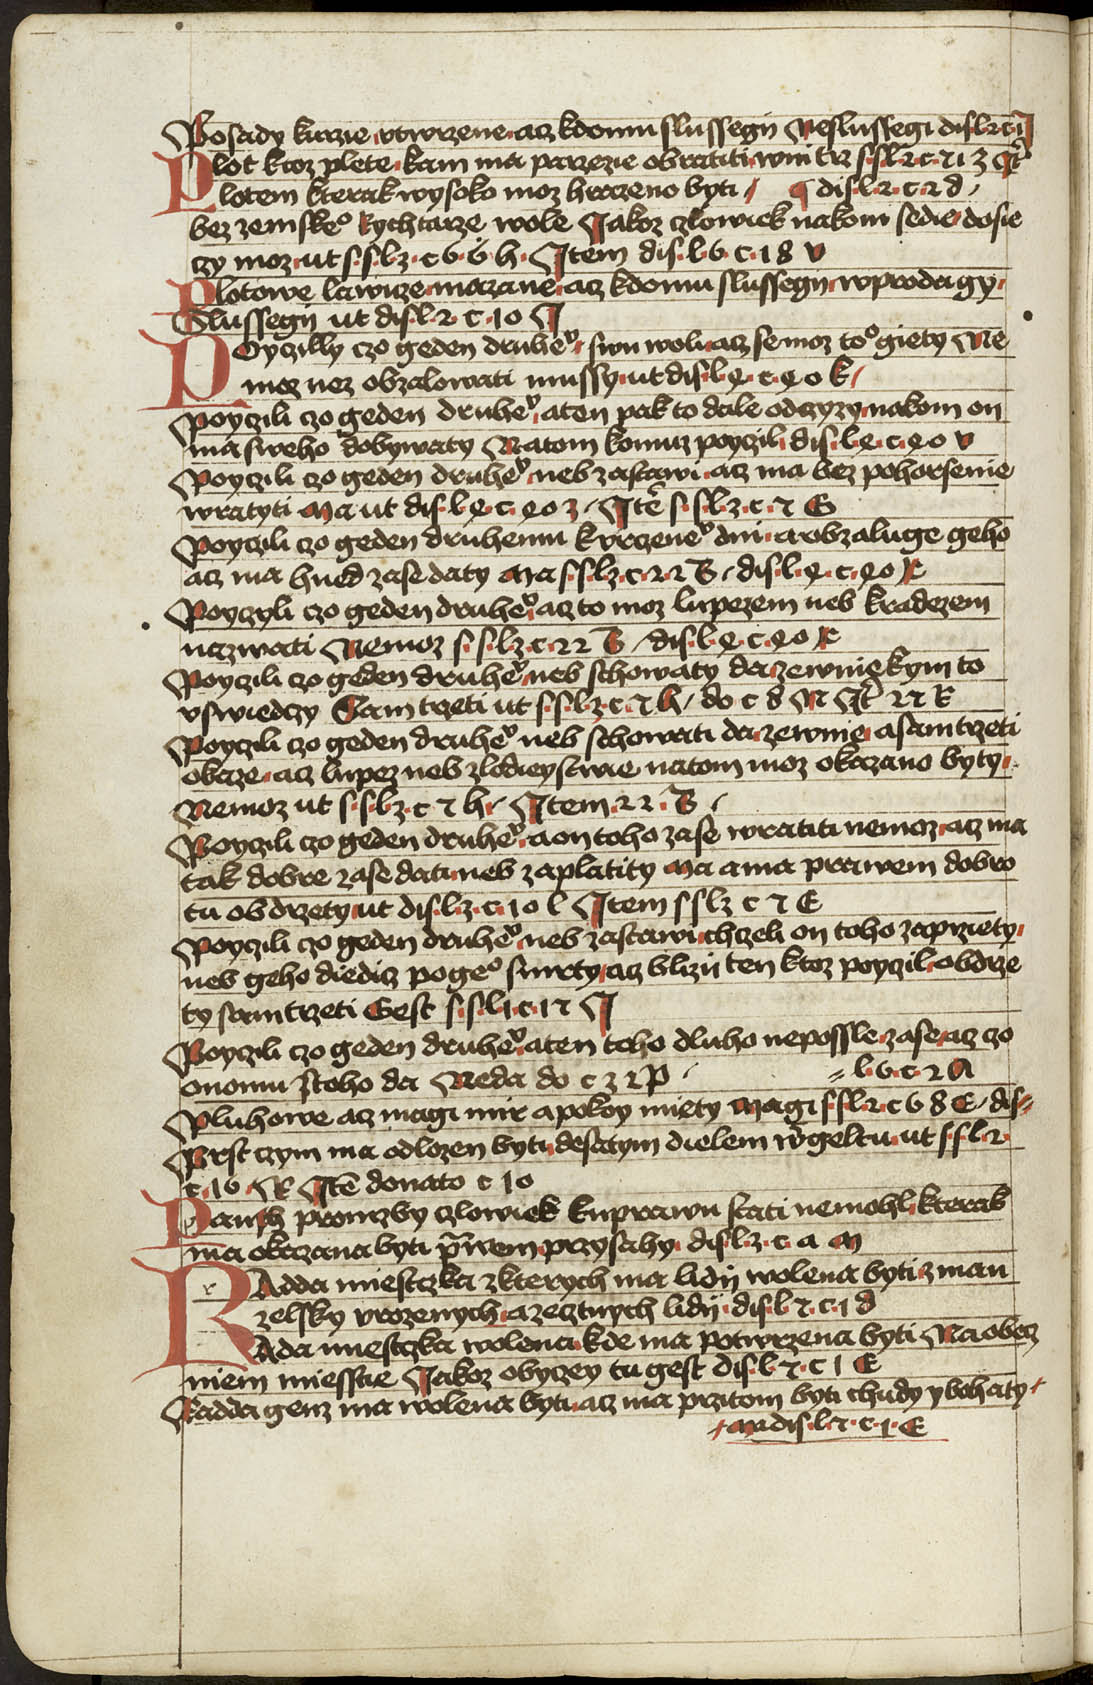 Posady kurzie vtwrzene acz kdomu slussegij Neslussegi disl 2 c i
Plot ktoz plete kam ma parzezie obratiti wnitrz s·s·l·2·c·71 3
Plotem kterak wysoko moz hrazeno byti ¶ dis·l·2·c·2 d
bez zemskeo Rychtarze wole Jakoz czlowiek nakom sedie dosie
czy moz ut s·s·l·z·c 6·6 h· Jtem dis·l·6 c·18 v
Plotowe lawicze mazane acz kdomu slussegij wprodagy
Slussegij ut dis·l·2· c·10 J
Poyczilly czo geden druheo swu woli acz semoz too giety Ne
moz nez obzalowati mussy ut dis·l·e·c·eo k
Poyczili czo geden druheo aten pak to dale odczyzy nakom on
ma sweho dobywaty Natom komuz poyczil dis·l·e·c·eo v
Poyczili czo geden druheo neb zastawi acz ma bez pohorsenie
wratyti Ma ut dis·l·e·c·eo z Jtem s·s·l·z·c·7 G
Poyczili czo geden druhemu kvrczeneo dni a obzaluge geho
acz ma hned zase daty Ma s·s·l·z·c·22 B dis·l·e·c·eo
Poyczyli czo geden druheo acz to moz lupezem neb kradezem
nazwati Nemoz s·s·l·z·c·22 B dis·l·e·c·eo
Poyczili czo geden druheo neb schowaty da zewniekym to
vswiedczy Sam trzeti ut s·s·l·z·c·7 h do c 8 N 27 R
Poyczili czo geden druheo neb schowati da zewnie asam trzeti
okaze acz lupez neb zlodieystwie natom moz okazano byty
Nemoz ut s·s·l·z·c 7 h· Jtem 22 B
Poyczili czo geden druheo aon toho zase wratiti nemoz acz ma
tak dobre zase dati neb zaplatity Ma ama prawem dobro
tu obdrzety ut dis·l·z·c·10 l Jtem s s l z c 7 E
Poyczili czo geden druheo neb zastawi chczeli on toho zaprziety
neb geho diedicz pogeo smrty acz blizij ten ktoz poyczil obdrze
ty sam trzeti Gest s·s·l·1·c·17 J
Poyczili czo geden druheo aten toho dluho neposfle zase acz czo
onomu stoho da Neda do c z 1 p l·6·c·2 A
Pluhowe acz magi mir apokoy miety Magi s s l 2 c 6 8 E dis
Prst czym ma odlozen byti desatym dielem wgeltu ut s·s·l·2·
c·16 R Jtem donato c 10
Panch pronizby czlowiek kuprawu stati nemohl kterak
ma okazana byti prwem przysahy dis·l·z·c·a m
RAdda miestczka zkterych ma lidij wolena byti z man
zelsky vrozenych azecztnych lidij dis·l·7·c·1 d
RAda miestczka wolena kde ma potwrzena byti Na obecz
niem miesstie Jakoz obyczey tu gest dis·l·7·c 1 E
Radda genz ma wolena byti acz ma przitom byti chudy y bohaty
Ma dis·l·7·c·1·E